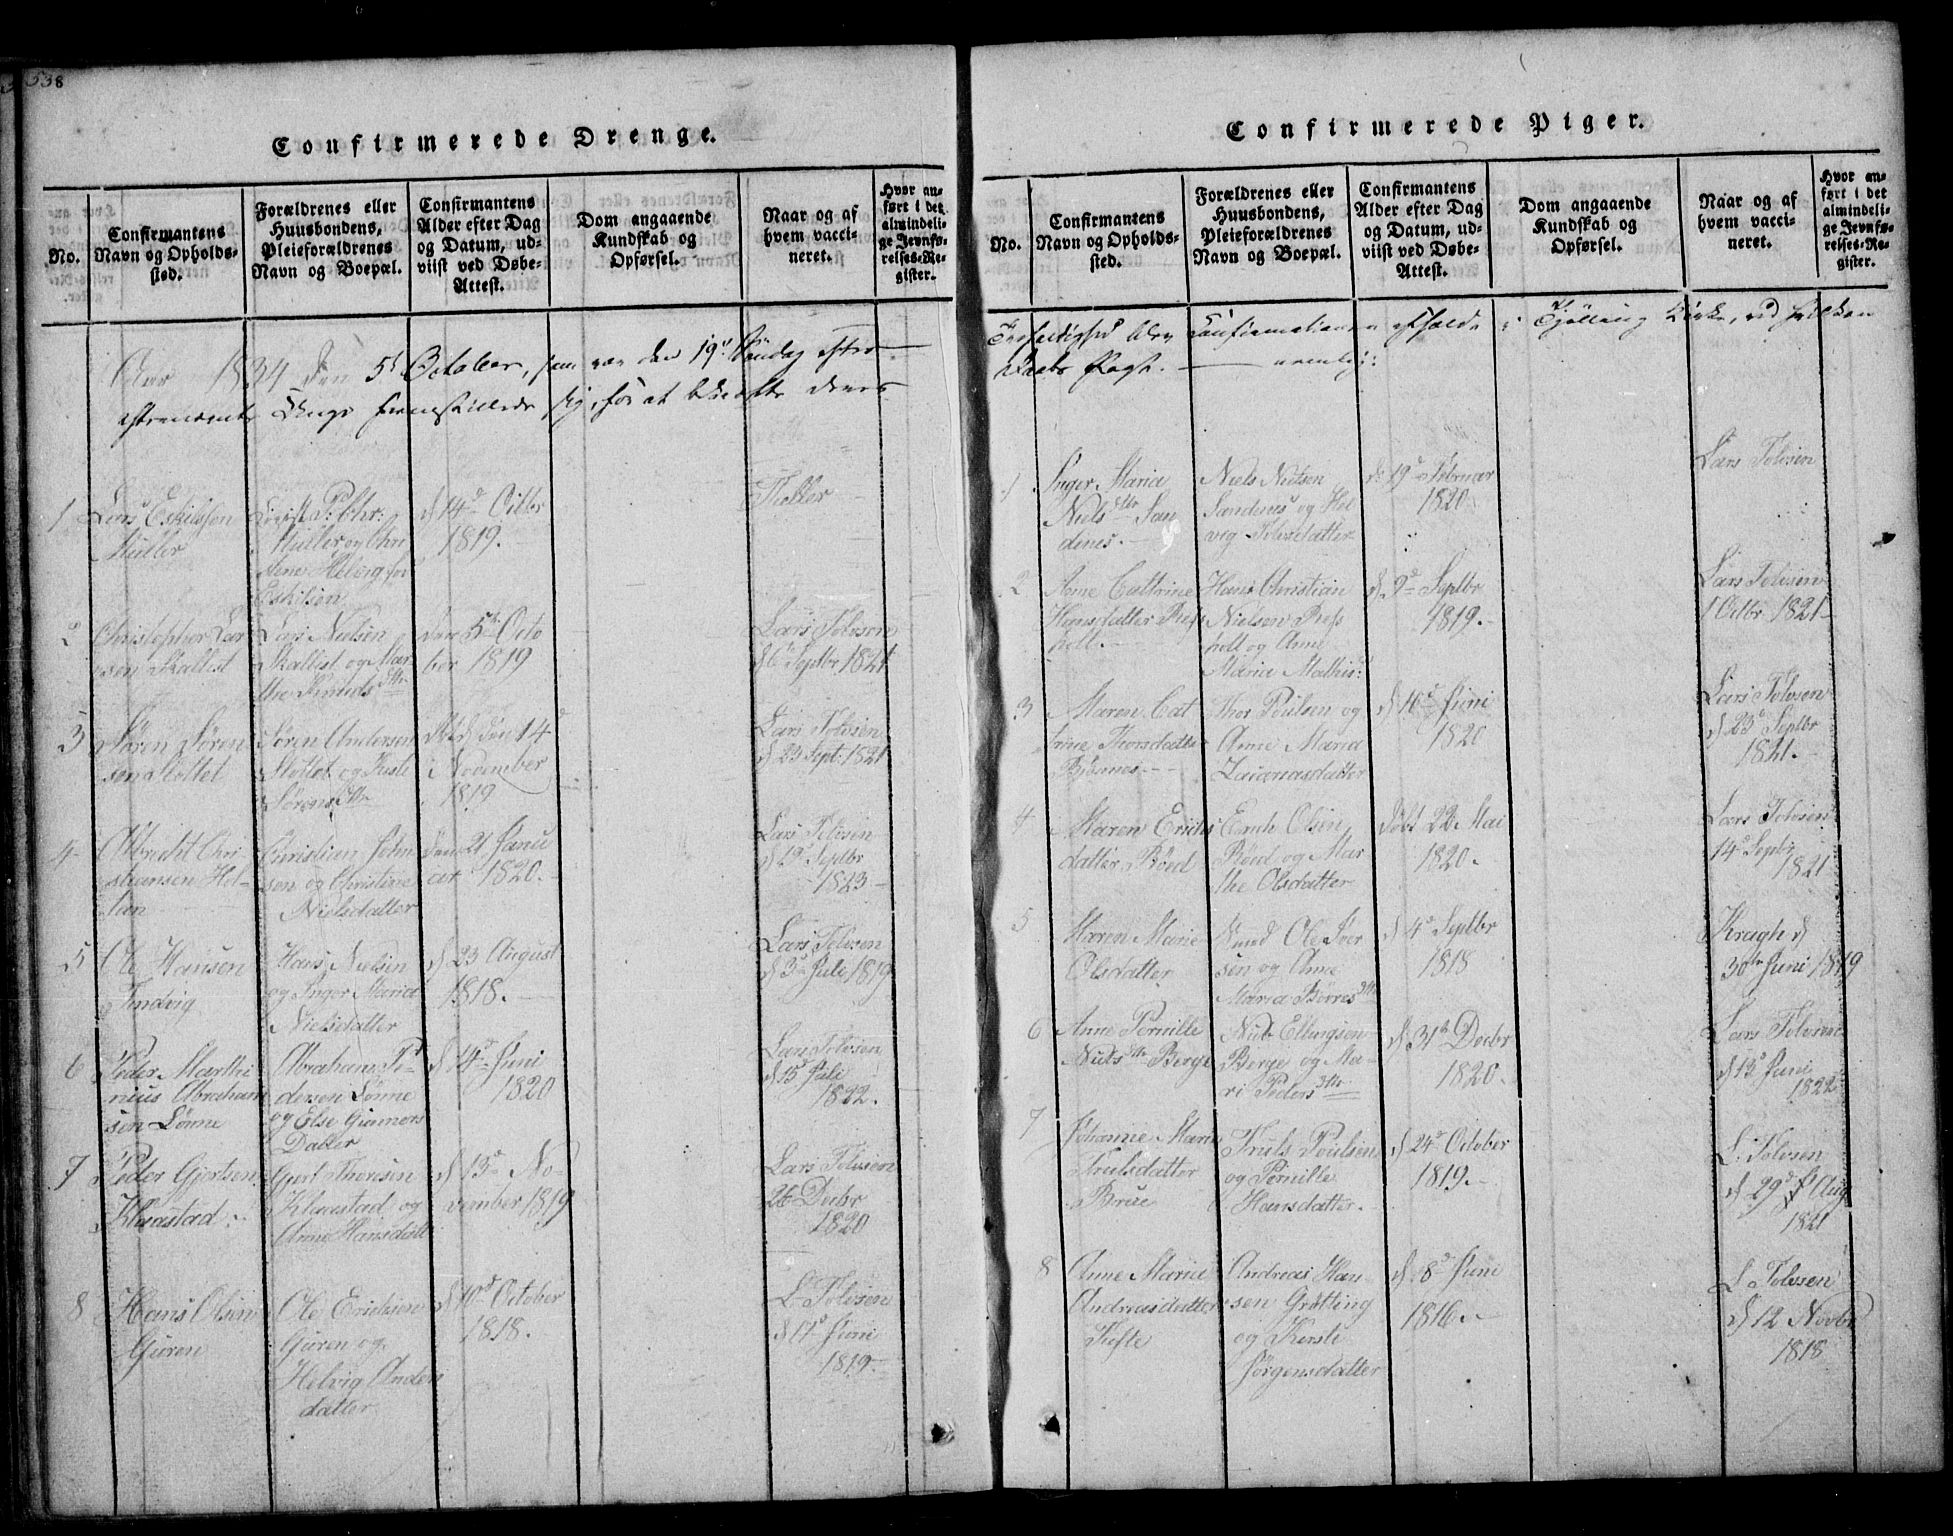 538
Confirmerede Drenge.
No.
Confirmantens
Navn og Opholds-
sted.
Forældrenes eller
Huusbondens,
Pleieforældrenes
Navn og Boepæl.
Confirmantens
Alder efter Dag
og Datum, ud-
viist ved Døbe-
Attest.
Dom angaaende
Kundskab og
Opførsel.
Naar og af
hvem vacci-
neret.
Hvor an-
ført i det
almindeli-
ge Jevnfø-
relses-Re-
gister.
Aar 1834 den 5t October, som var den 19d Søndag efter
efternævnte Unge fremstillede sig, for at bekræfte deres
1
Lars Eskildsen
Müller
P: Chr:
Müller og Chri
stene Heberg for
Eskilsen
d 14d Octbr
1819.
Møller
2
Christopher Lar
sen Skallist
Lars Nielsen
Skallist og Mar
the Knuds Dtr
den 5te Octo
ber 1819
Lars Tolvsen
d 6 Septbr 1821
3
Søren Søren
sen Stottet
Søren Andersen
Stottet og
Sørens Dtr
den 14d
November
1819
Lars Tolvsen
d 23 Sept. 1821
4
Albrecht Chri
stiansen Hel-
Christian John
sen og Christine
Nielsdatter
den 21 Janu
ar 1820.
Lars Tolvsen
d 29 Septbr
1823
5
Ole Hansen
Tindvig
Hans Nielsen
og Inger Maria
Nielsdatter
d 23 August
1818.
Lars Tolvsen
d 3d Juli 1819
6
Peder Marthi
nius Abraham
sen Lønne
Abraham Pe-
dersen Lønne
og Else Gunners
Datter
d 14d Juni
1820
Lars Tolvsen
d 15 Juli
1822.
7
Peder Gjertsen
Klaastad
Gjert Thoresen
Klaastad og
Anne Hansdatt
d 13d No-
vember 1819
Lars Tolvsen
26 Decbr
1820
8
Hans Olsen
Guren
Ole Erichsen
Guren og
Helvig Anders
datter
d 10d October
1818.
L Tolvsen
d 17d Juni
1819.
Confirmerede Piger.
No.
Confirmantens
Navn og Opholds-
sted.
Forældrenes eller
Huusbondens,
Pleieforældrenes
Navn og Boepæl.
Confirmantens
Alder efter Dag
og Datum, ud-
viist ved Døbe-
Attest.
Dom angaaende
Kundskab og
Opførsel.
Naar og af
hvem vacci-
neret.
Hvor an-
ført i det
almindeli-
ge Jevnfø-
relses-Re-
gister.
Trefoldighed blev Confirmationen afholdt i Tjølling Kirke, ved hvilken
Daabs Pagt. nemlig:
1
Inger Maria
Niels Dtr San
denes.
Niels Nielsen
Sandenes og Hel
vig Tolvsdatter
d 19d Februar
1820
Lars Tolvsen
2
Anne Cathrine
Hansdatter Refs
holt.
Hans Christian
Nielsen Refs
holt og Anne
Maria Mathis:
d 9d Septbr
1819.
Lars Tolvsen
1 Octbr. 1821
3
Maren Cat
rine Thorsdatter
Bjønnes
Thor Poulsen og
Anne Maria
Zacariasdatter
d 16d Juni
1820
Lars Tolvsen
d 23d Septbr
1821.
4
Maren Erichs
datter Røed
Erich Olsen
Røed og Mar
the Olsdatter
født 22 Mai
1820.
Lars Tolvsen
14d Septbr
1821
5
Maren Marie
Olsdatter
Ole Iver
sen og Anne
Maria Børres Dtr
d 4d Septbr
1818
Kragh d
30te Juni 1819
6
Anne Pernille
Niels Dtr Berge
Niels Ellingsen
Berge og Ma-
ri Peders Dtr
d 31te Decbr
1820.
Lars Tolvsen
d 13d Juni
1822
7
Johanne Marie
Trulsdatter
Brue
Truls Poulsen
og Pernille
Hansdatter.
d 24d October
1819.
L. Tolvsen
d 29d Aug
1821
8
Anne Marie
Andreasdatter
Tufte
Andreas Han
sen Grøtting
og Kirsti
Jørgensdatter
d 8d Juni
1816.
L Tolvsen
d 12 Novbr
1818